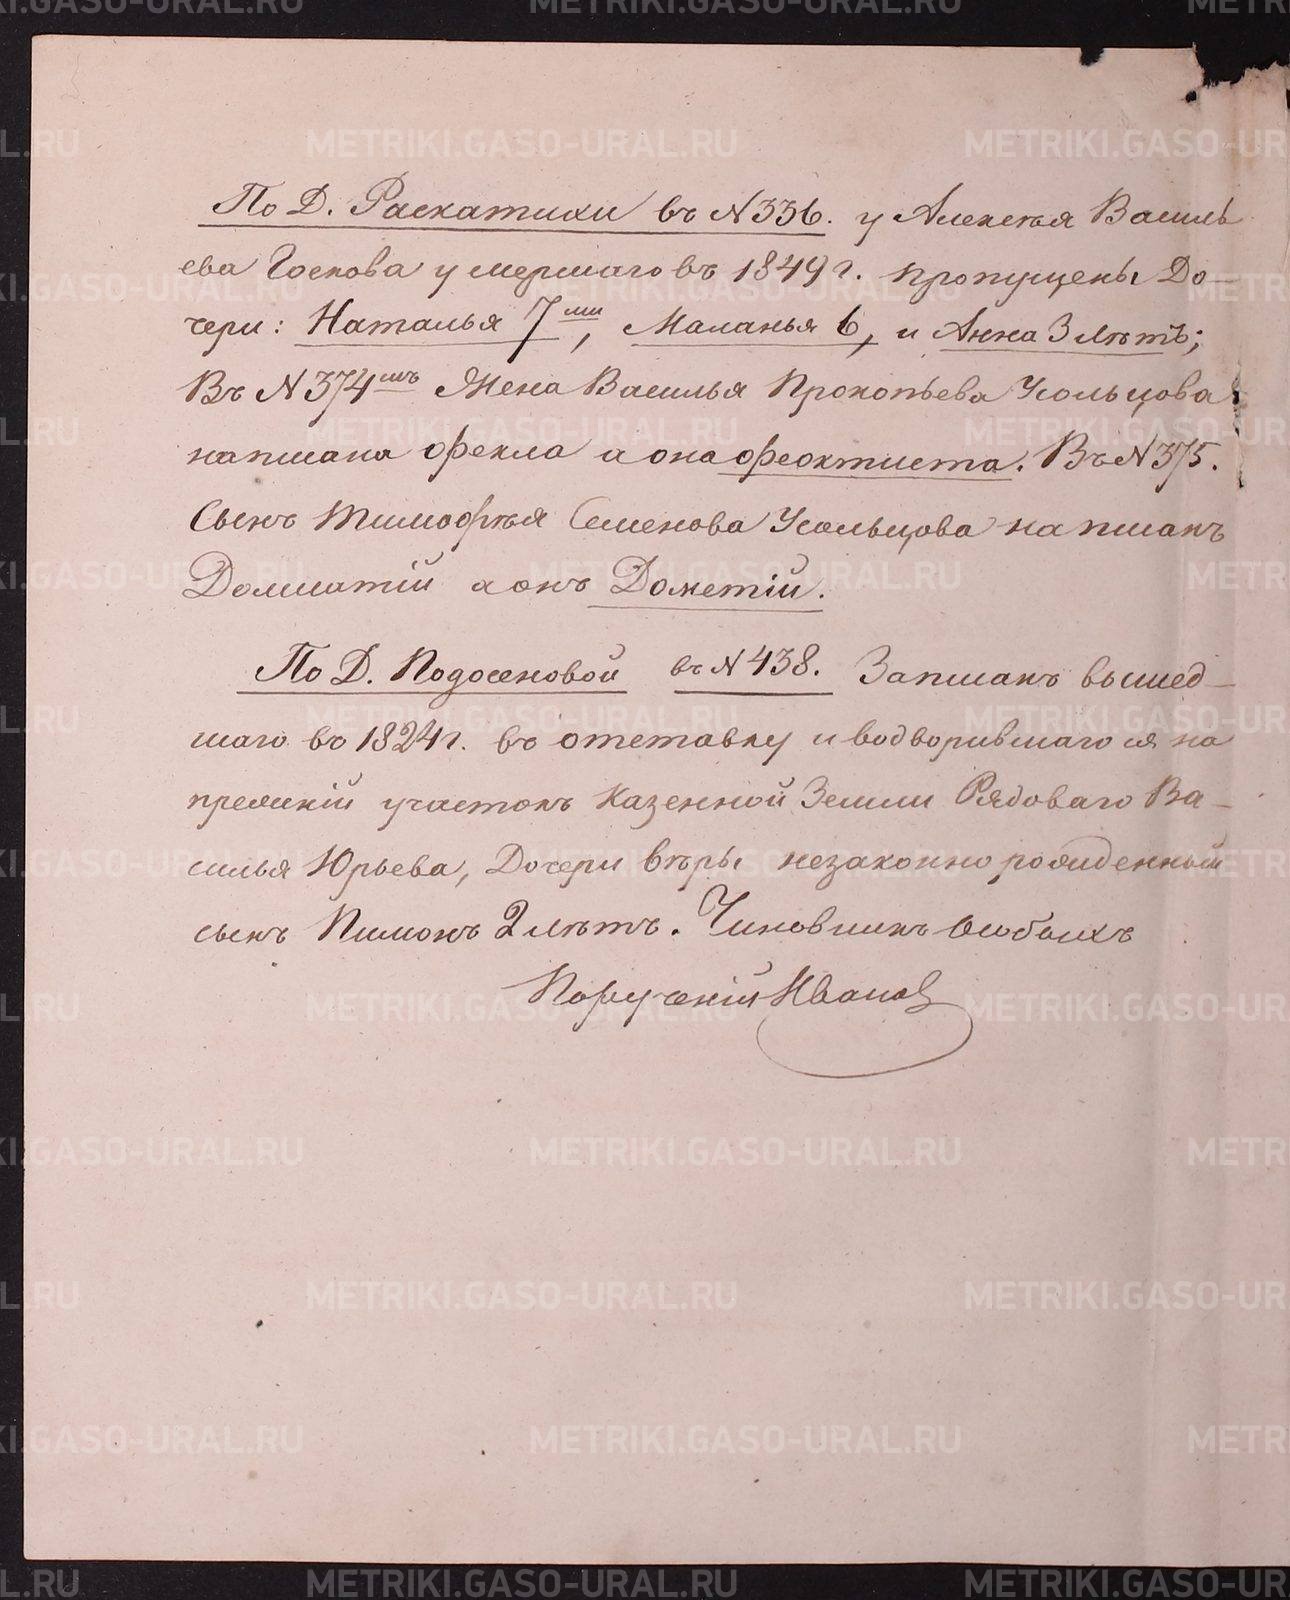 По Д. Раскатихи въ N 336. у Алексѣя Василь
ева Госкова умершаго въ 1849 г. пропущены До-
чери: Наталья 7ми, Маланья 6, и Анна 3 лѣтъ;
Въ N 374мъ Жена Василья Прокопьева Усольцова
написана Ѳекла а она Ѳеоктиста. Въ N 375.
Сынъ Тимофѣя Семенова Усольцова написанъ
Долматій а онъ Дометій.
По Д. Подосеновой въ N 438. Записанъ вышед-
шаго въ 1824 г. въ отставку и водворившагося на
прежній участокъ Казенной Земли Рядоваго Ва-
силья Юрьева, Дочери Вѣры незаконно рожденный
сынъ Пимонъ 2 лѣтъ. Чиновникъ Особыхъ
Порученій Иванов
METRIKI.GASO-URAL.RU